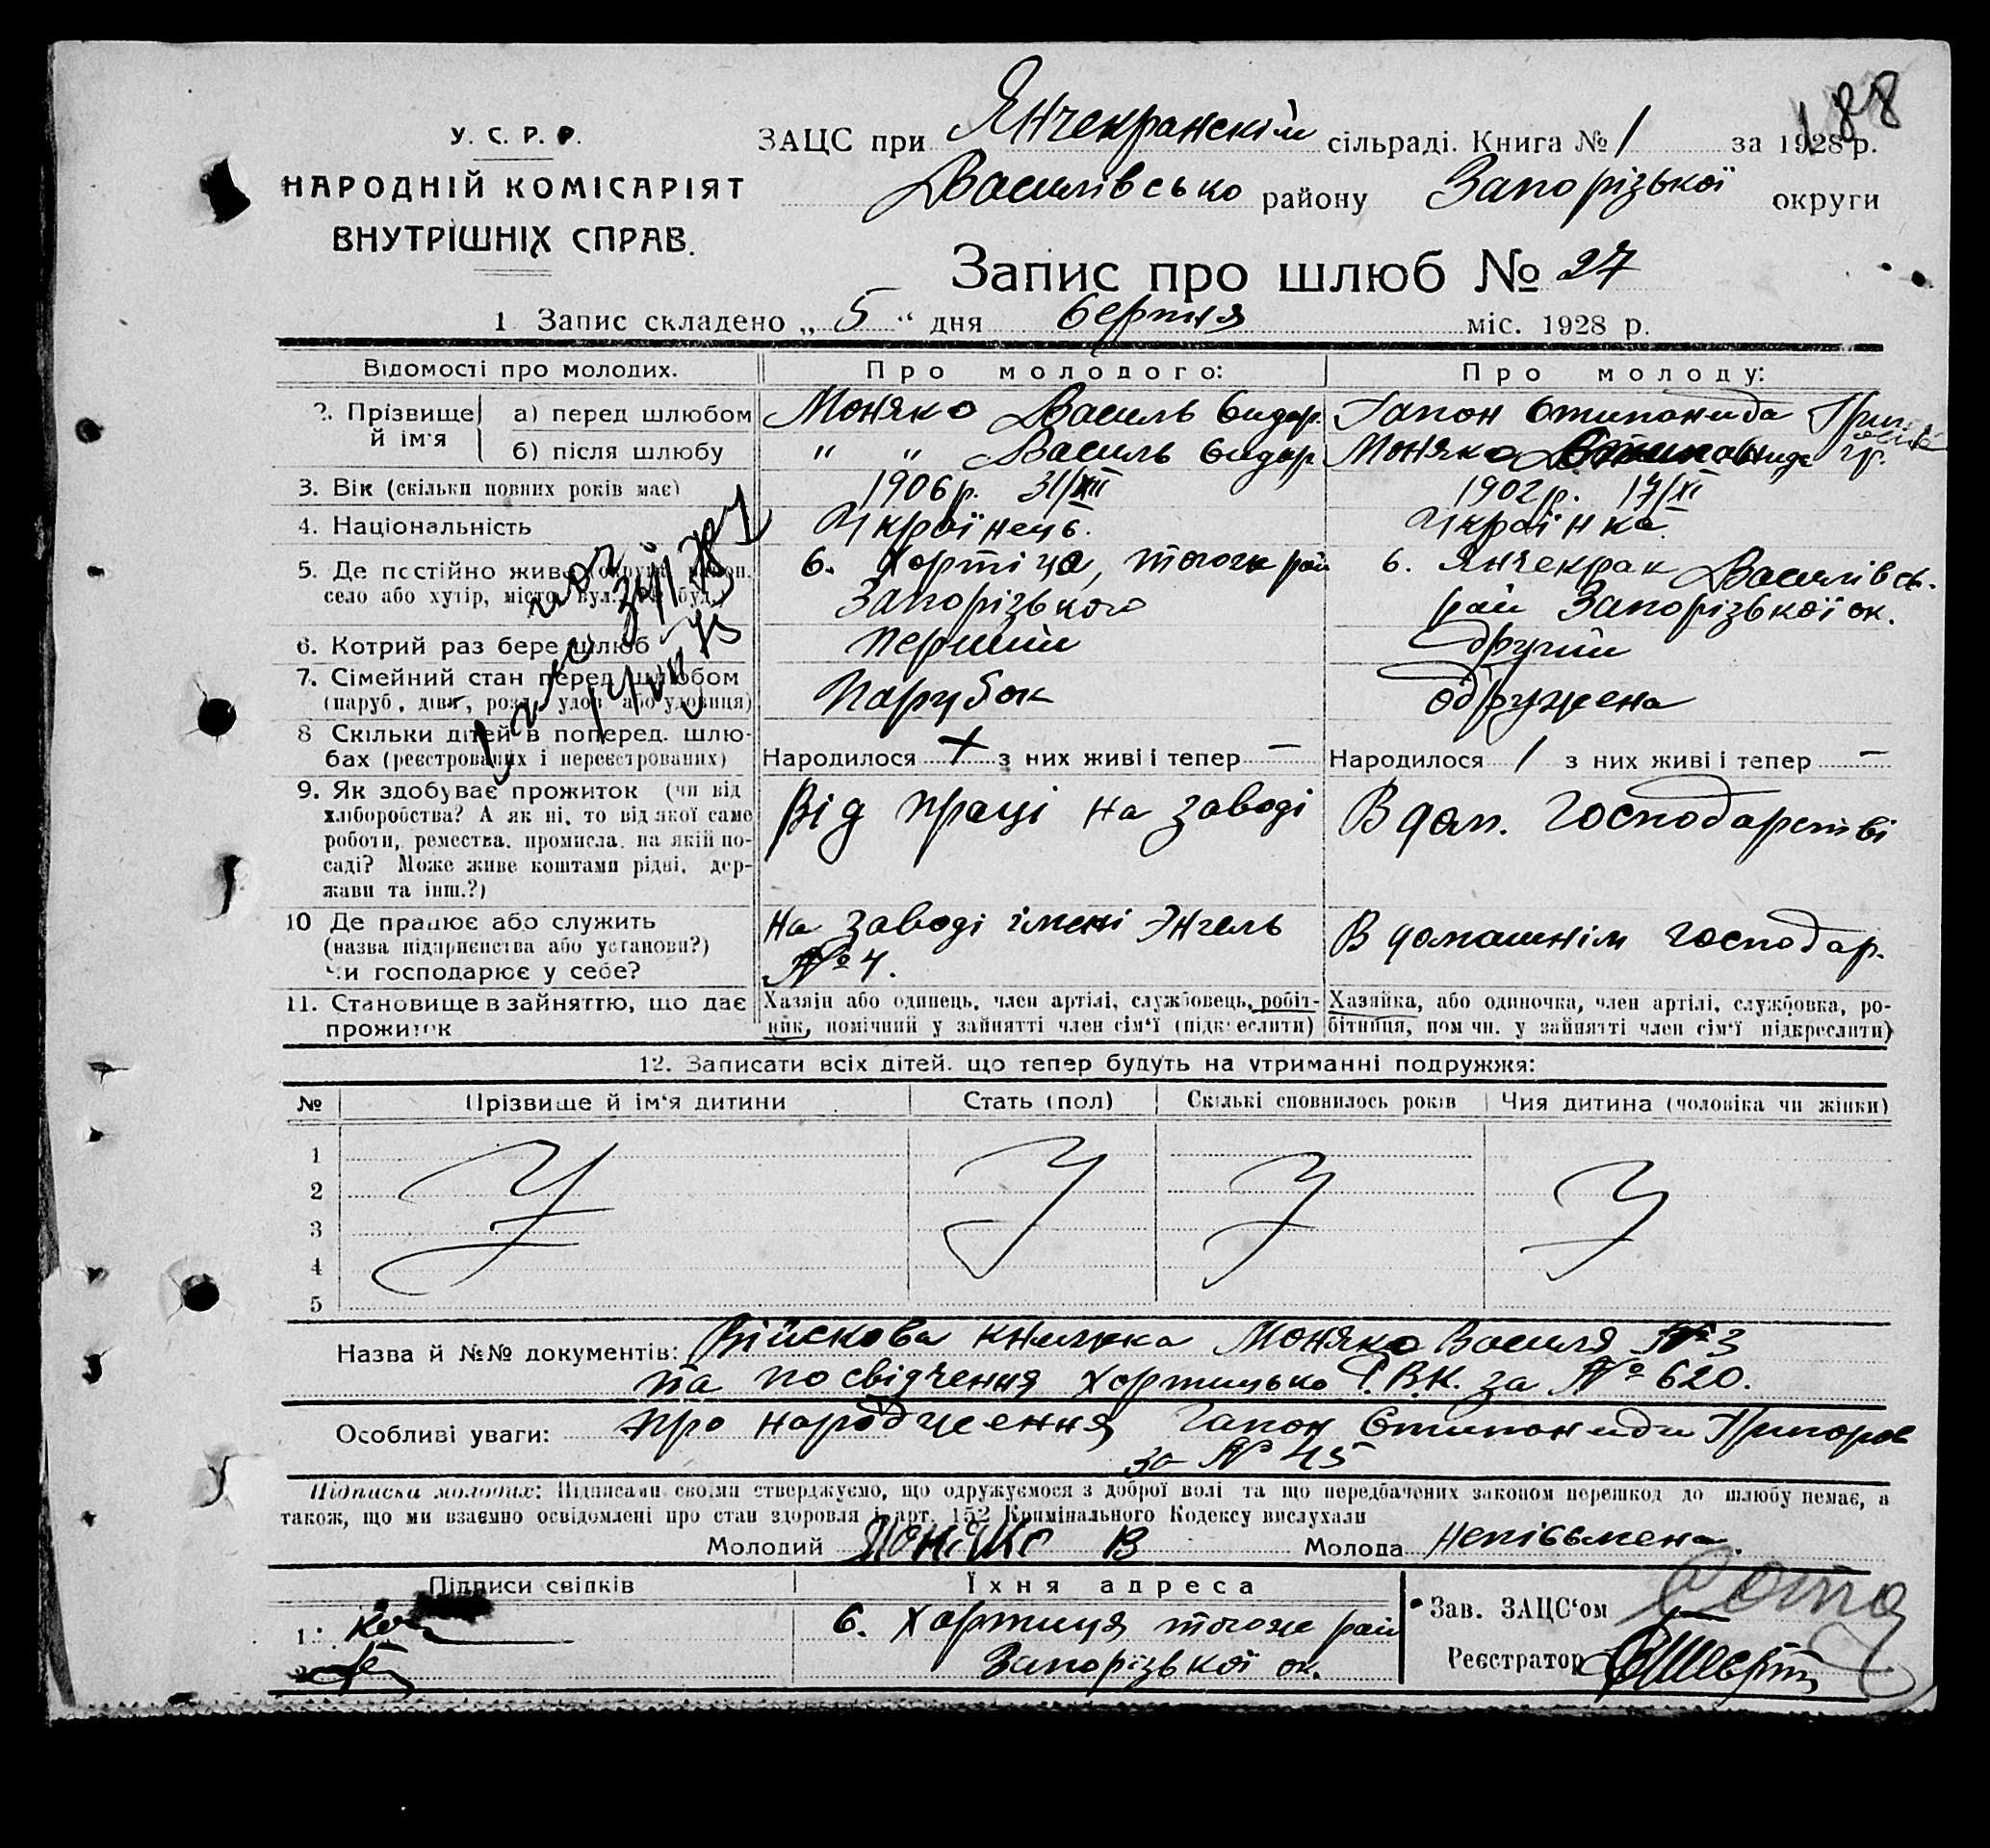 188
У. С. Р. Р.
НАРОДНІЙ КОМІСАРІЯТ
ВНУТРІШНІХ СПРАВ.
ЗАЦС при Янчекранскій сільраді. Книга № 1 за 1928 р.
Василівсько району Запорізької округи
Запис про шлюб № 27
1 Запис складено „ 5 “ дня берпня міс. 1928 р.
Відомості про молодих. Про молодого: Про молоду:
2. Прізвище й ім'я
а) перед шлюбом Моняко Василь Сидор. Гапон Стипонида Григ.
б) після шлюбу " " Василь Сидор Моняко гр.
3. Вік (скільки повних років має) 1906 р. 31/XII 1902 р. 17/XI
4. Національність Українець. Українка.
5. Де постійно живе
село або хутір, місто, вул.
с. Хортіца, тогож рай
Запорізького
с. Янчекрак Василівсь.
рай Запорізької ок.
6. Котрий раз бере шлюб перший другий
7. Сімейний стан перед шлюбом Парубок одружена
(паруб, дівч, розл удов або удовиця)
8 Скільки дітей в поперед. шлюбах (реєстрованих і нереєстрованих)
Народилося + з них живі і тепер — Народилося 1 з них живі і тепер —
9. Як здобуває прожиток (чи від
хліборобства? А як ні, то від якої саме
роботи, ремества, промисла, на якій по-
саді? Може живе коштами рідні, дер-
жави та інш.?)
Від праці на заводі
В дом. господарстві
10 Де працює або служить
(назва підприємства або установи?)
Чи господарює у себе?
На заводі імені Энгель
№ 4.
В домашнім господар.
11. Становище в зайняттю, що дає
прожиток
Хазяїн або одинець, член артілі, службовець, робіт-
ник, помічний у зайнятті член сім'ї (підкреслити)
Хазяйка, або одиночка, член артілі, службовка, ро-
бітниця, пом чн. у зайнятті член сім'ї підкреслити)
12. Записати всіх дітей, що тепер будуть на утриманні подружжя:
№ Прізвище й ім'я дитини Стать (пол) Скількі сповнилось років Чия дитина (чоловіка чи жінки)
1
2
3
4
5
Назва й №№ документів: Військова книжка Моняко Василя № 3
та посвідчення Хортицько Р.В.К. за № 620.
Особливі уваги: про народження Гапон Стипониди Григоров
за № 45
Підписка молодих: Підписами своїми стверджуємо, що одружуємося з доброї волі та що передбачених законом перешкод до шлюбу немає, а
також, що ми взаємно освідомлені про стан здоровля і арт. 152 Кримінального Кодексу вислухали
Молодий Моняко В Молода Непісьмена.
Підписи свідків Їхня адреса
1.
2.
с. Хортиця тогоже рай
Запорізької ок.
Зав. ЗАЦС'ом
Реєстратор